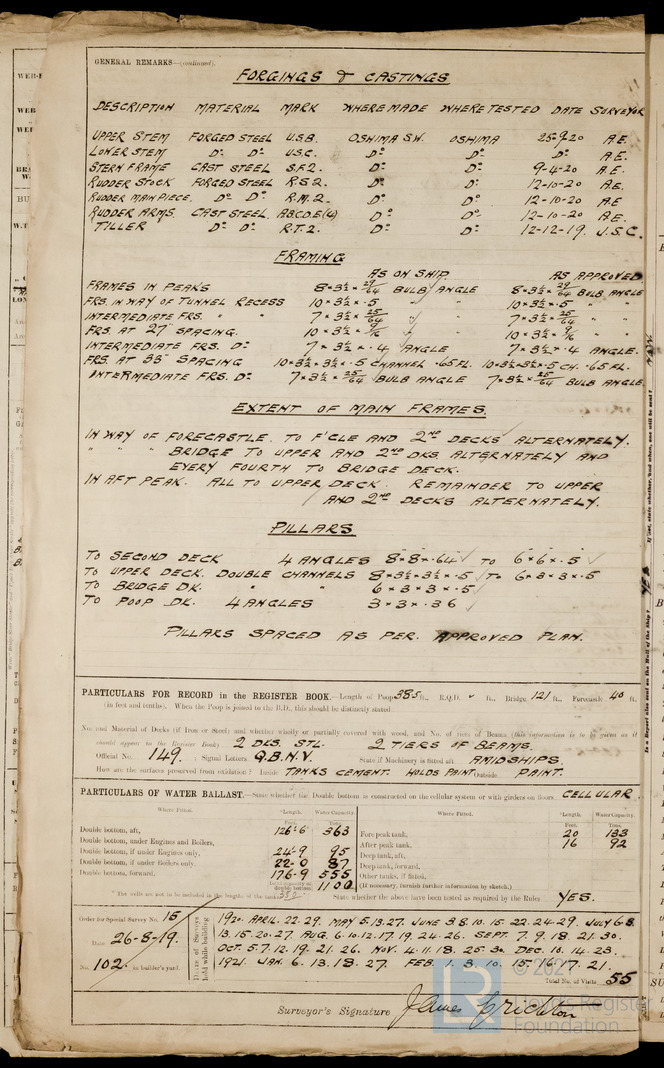 GENERAL REMARKS—(continued).
FORGINGS & CASTINGS
DESCRIPTION MATERIAL MARK WHERE MADE WHERE TESTED DATE SURVEYOR
UPPER STEM FORGED STEEL U.S.B. OSHIMA S.W. OSHIMA 25-9-20 A.E.
LOWER STEM Do Do U.S.C. Do Do Do A.E.
STERN FRAME CAST STEEL S.F.2. Do Do 9-4-20 A.E.
RUDDER STOCK FORGED STEEL R.S.2. Do Do 12-10-20 A.E.
RUDDER MAINPIECE. Do Do R.M.2. Do Do 12-10-20 A.E
RUDDER ARMS. CAST STEEL. A.B.C.D.E.(4) Do Do 12-10-20 A.E.
TILLER Do Do R.T.2. Do Do 12-12-19. J.S.C.
FRAMING
AS ON SHIP AS APPROVED
FRAMES IN PEAKS 8×3½×29/64 BULB ANGLE 8×3½×29/64 BULB ANGLE
FRS. IN WAY OF TUNNEL RECESS 10×3½×.5 " " 10×3½×.5 " "
INTERMEDIATE FRS. " " 7×3½×25/64 " " 7×3½×25/64 " "
FRS AT 27 SPACING. 10×3½×9/16 " " 10×3½×9/16 " "
INTERMEDIATE FRS. Do 7×3½×.4 ANGLE 7×3½×.4 ANGLE.
FRS. AT 33 SPACING 10×3½×3½×.5 CHANNEL .65 FL. 10×3½×3½×.5 CH. .65 FL.
INTERMEDIATE FRS. Do 7×3½×25/64 BULB ANGLE 7×3½×25/64 BULB ANGLE
EXTENT OF MAIN FRAMES.
IN WAY OF FORECASTLE. TO F'CLE AND 2ND DECKS ALTERNATELY.
" " " BRIDGE TO UPPER AND 2ND DKS. ALTERNATELY AND
EVERY FOURTH TO BRIDGE DECK.
IN AFT PEAK. ALL TO UPPER DECK. REMAINDER TO UPPER
AND 2ND DECKS ALTERNATELY.
PILLARS
TO SECOND DECK 4 ANGLES 8×8×.64 TO 6×6×.5
TO UPPER DECK. DOUBLE CHANNELS 8×3½×3½×.5 TO 6×3×3×.5
TO BRIDGE DK. " " 6×3×3×.5
TO POOP DK. 4 ANGLES 3×3×.36
PILLARS SPACED AS PER. APPROVED PLAN.
PARTICULARS FOR RECORD in the REGISTER BOOK.—Length of Poop 38.5 ft., R.Q.D. " ft., Bridge 121 ft., Forecastle 40 ft.
(in feet and tenths). When the Poop is joined to the B.D., this should be distinctly stated
No. and Material of Decks (if Iron or Steel) and whether wholly or partially covered with wood, and No. of tiers of Beams (this information is to be given as it
should appear in the Register Book) 2 DKS. STL. 2 TIERS OF BEAMS.
Official No. 149. Signal Letters Q.B.N.V. State if Machinery is fitted aft AMIDSHIPS.
How are the surfaces preserved from oxidation? Inside TANKS CEMENT. HOLDS PAINT Outside PAINT.
PARTICULARS OF WATER BALLAST.—State whether the Double bottom is constructed on the cellular system or with girders on floors CELLULAR.
Where Fitted. Length. Water Capacity. Where Fitted. Length. Water Capacity.
Feet. Tons. Feet. Tons.
Double bottom, aft, 126-6 363 Fore peak tank, 20 133
Double bottom, under Engines and Boilers, After peak tank, 16 92
Double bottom, if under Engines only, 24-9 95 Deep tank, aft,
Double bottom, if under Boilers only, 22-0 87 Deep tank, forward,
Double bottom, forward, 176-9 555 Other tanks, if fitted,
Total capacity of double bottom 1100 (If necessary, furnish further information by sketch.)
* The wells are not to be included in the lengths of the tanks State whether the above have been tested as required by the Rules YES.
Order for Special Survey No. 15
Date 26-8-19.
No. 102 in builder's yard.
Dates of Surveys held while building
1920. APRIL. 22. 29. MAY 5. 13. 27. JUNE 3. 8. 10. 15. 22. 24. 29. JULY 6. 8.
13. 15. 20. 27. AUG. 6. 10. 12. 17. 19. 24. 26. SEPT. 7. 9. 18. 21. 30.
OCT. 5. 7. 12. 19. 21. 26. NOV. 4. 11. 18. 25. 30. DEC. 10. 14. 23.
1921. JAN. 6. 13. 18. 27. FEB. 1. 3. 10. 15. 16. 17. 21.
Total No. of Visits 55
Surveyor's Signature James Crichton
LR
© 202
Lloyd's Register
Foundation